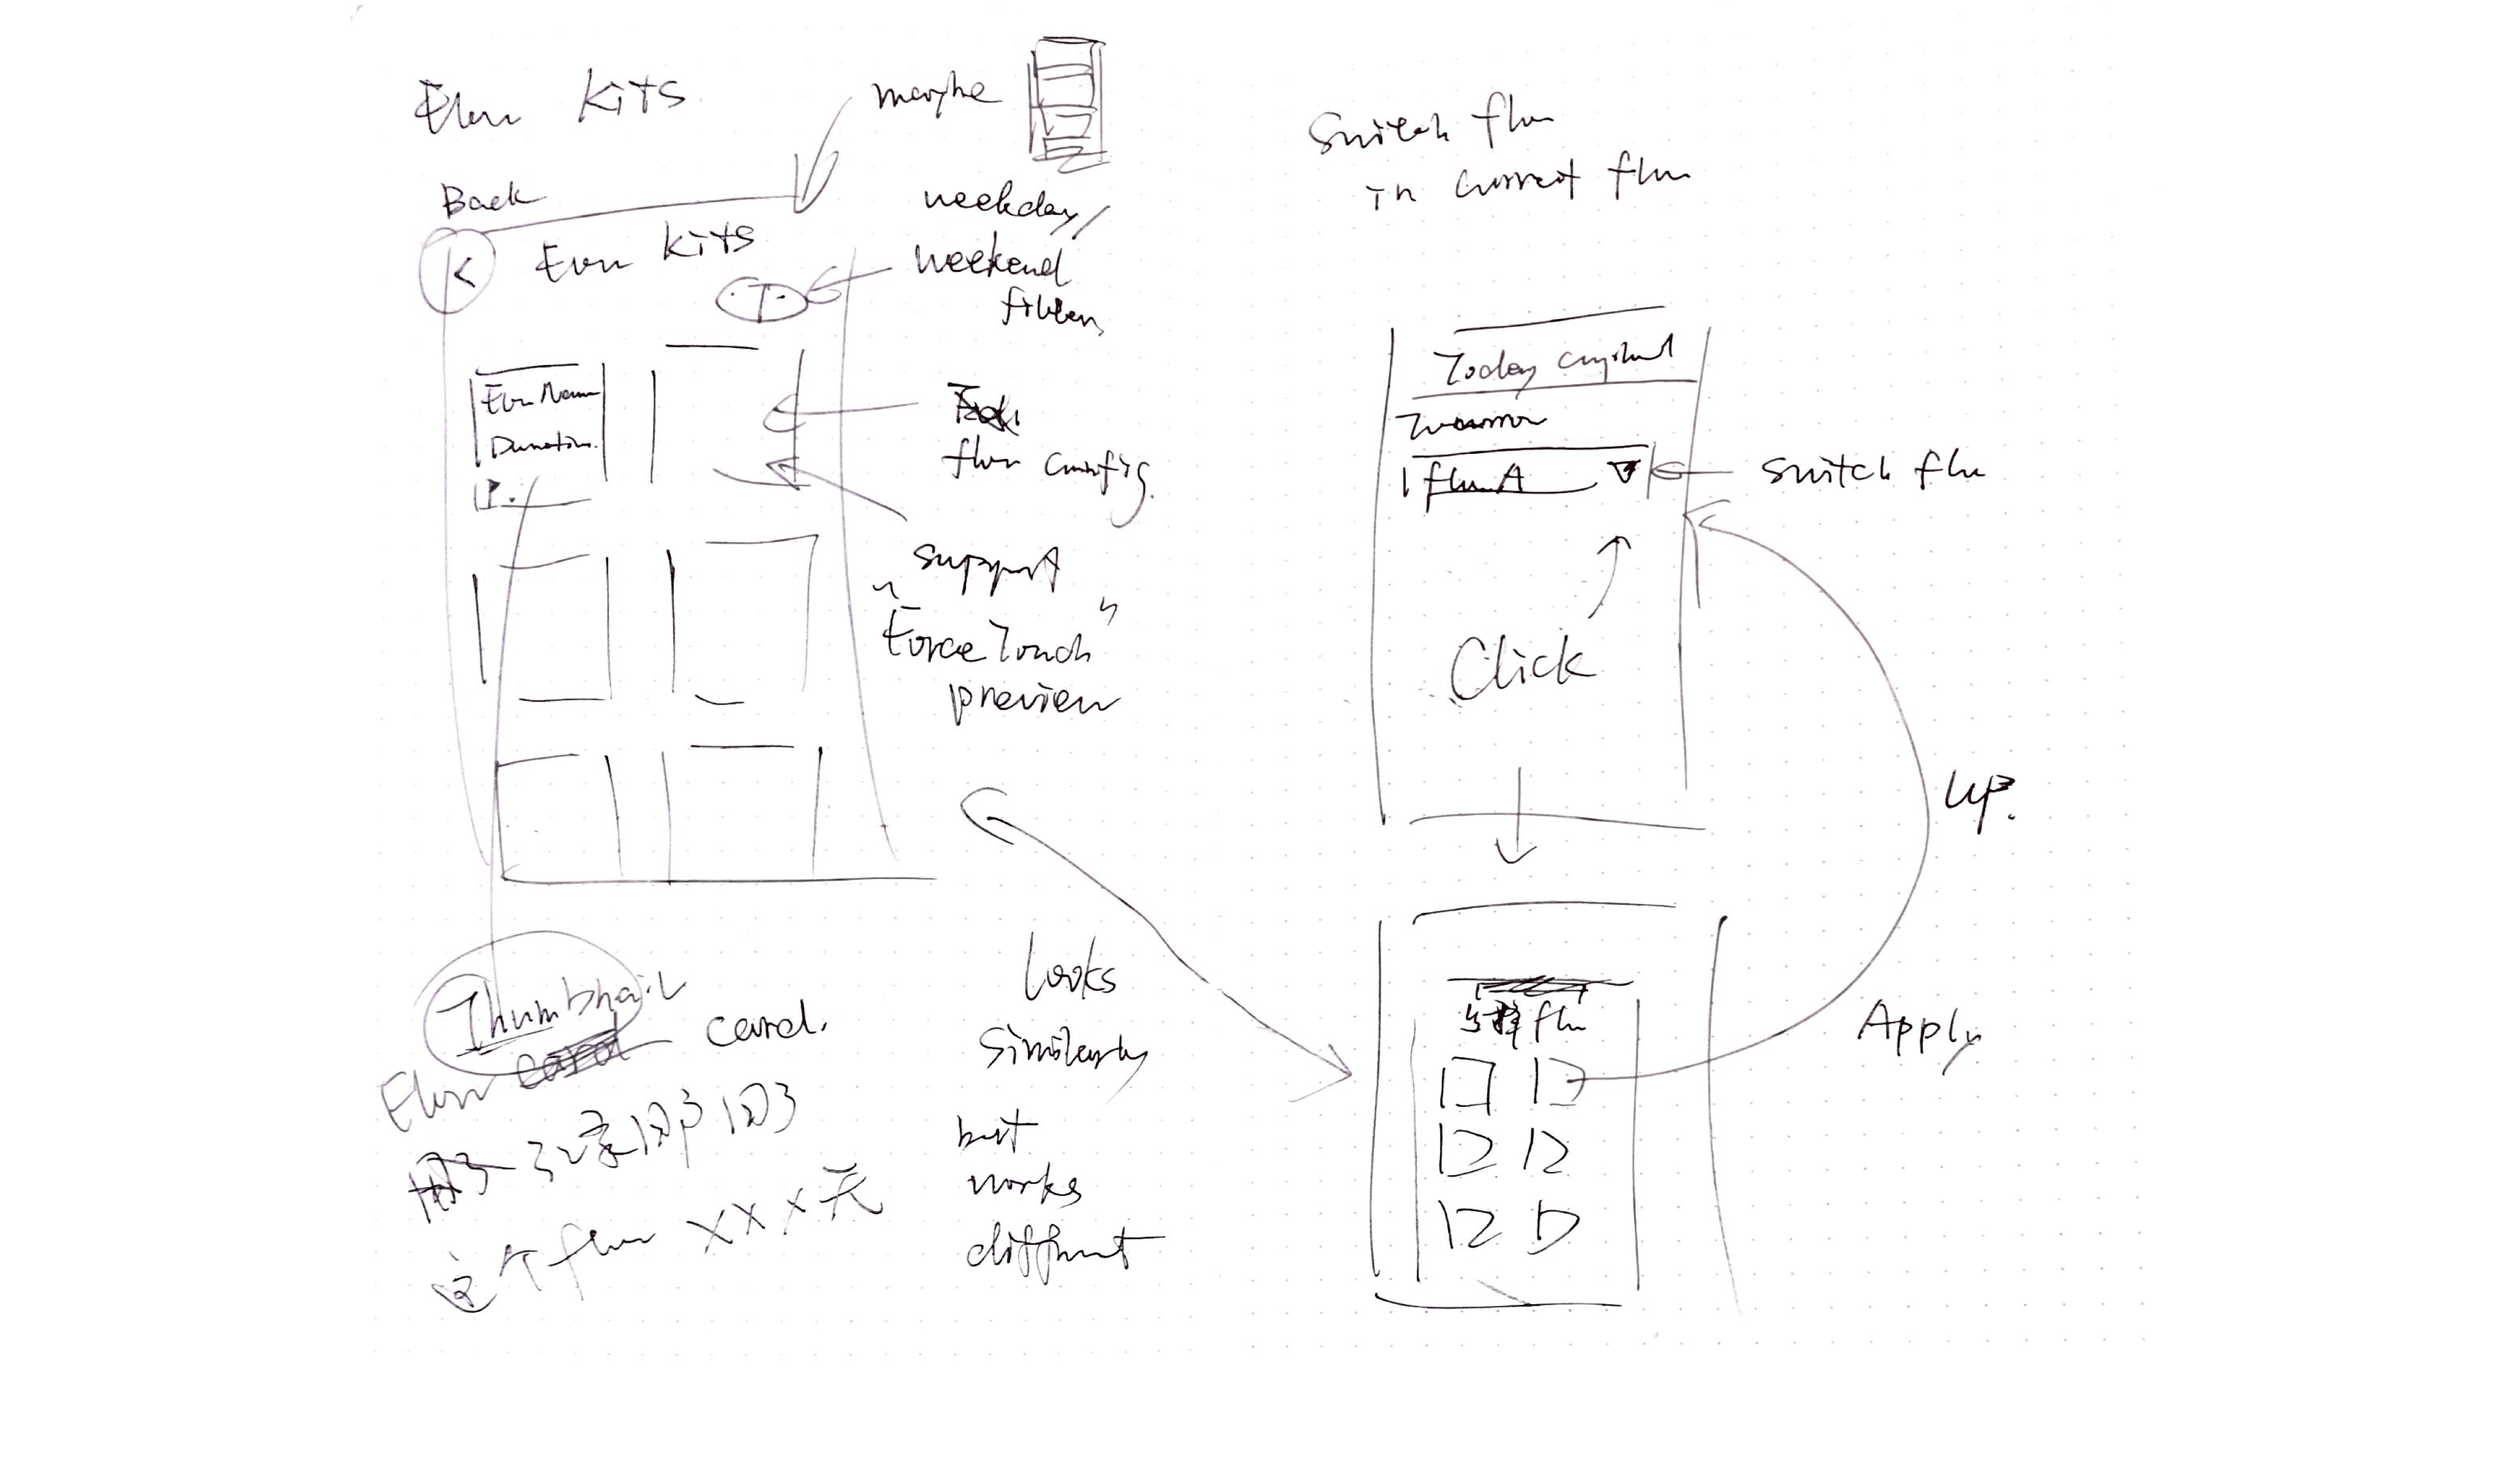 Flow Kits
maybe
Back
Flow Kits
weekday/
weekend
filters
Flow Name
Duration
flow config.
support
"Force Touch"
preview
Thumbnail
card.
Flow
这个flow XXX天
looks
Similarly
but
works
different
Switch flow
in current flow
Today
Tomorrow
flow A
switch flow
Click
up.
选择flow
Apply